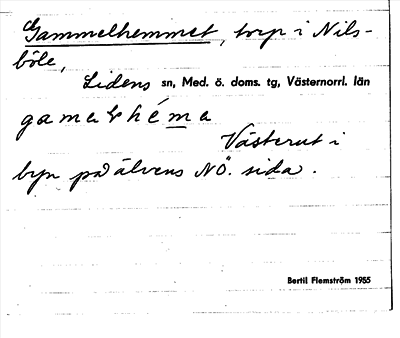 Gammelhemmet, torp i Nils-
böle,
Lidens sn, Med. ö. doms. tg, Västernorrl. län
gamalhéma
Västerut i
byn på älvens NÖ. sida.
Bertil Flemström 1955